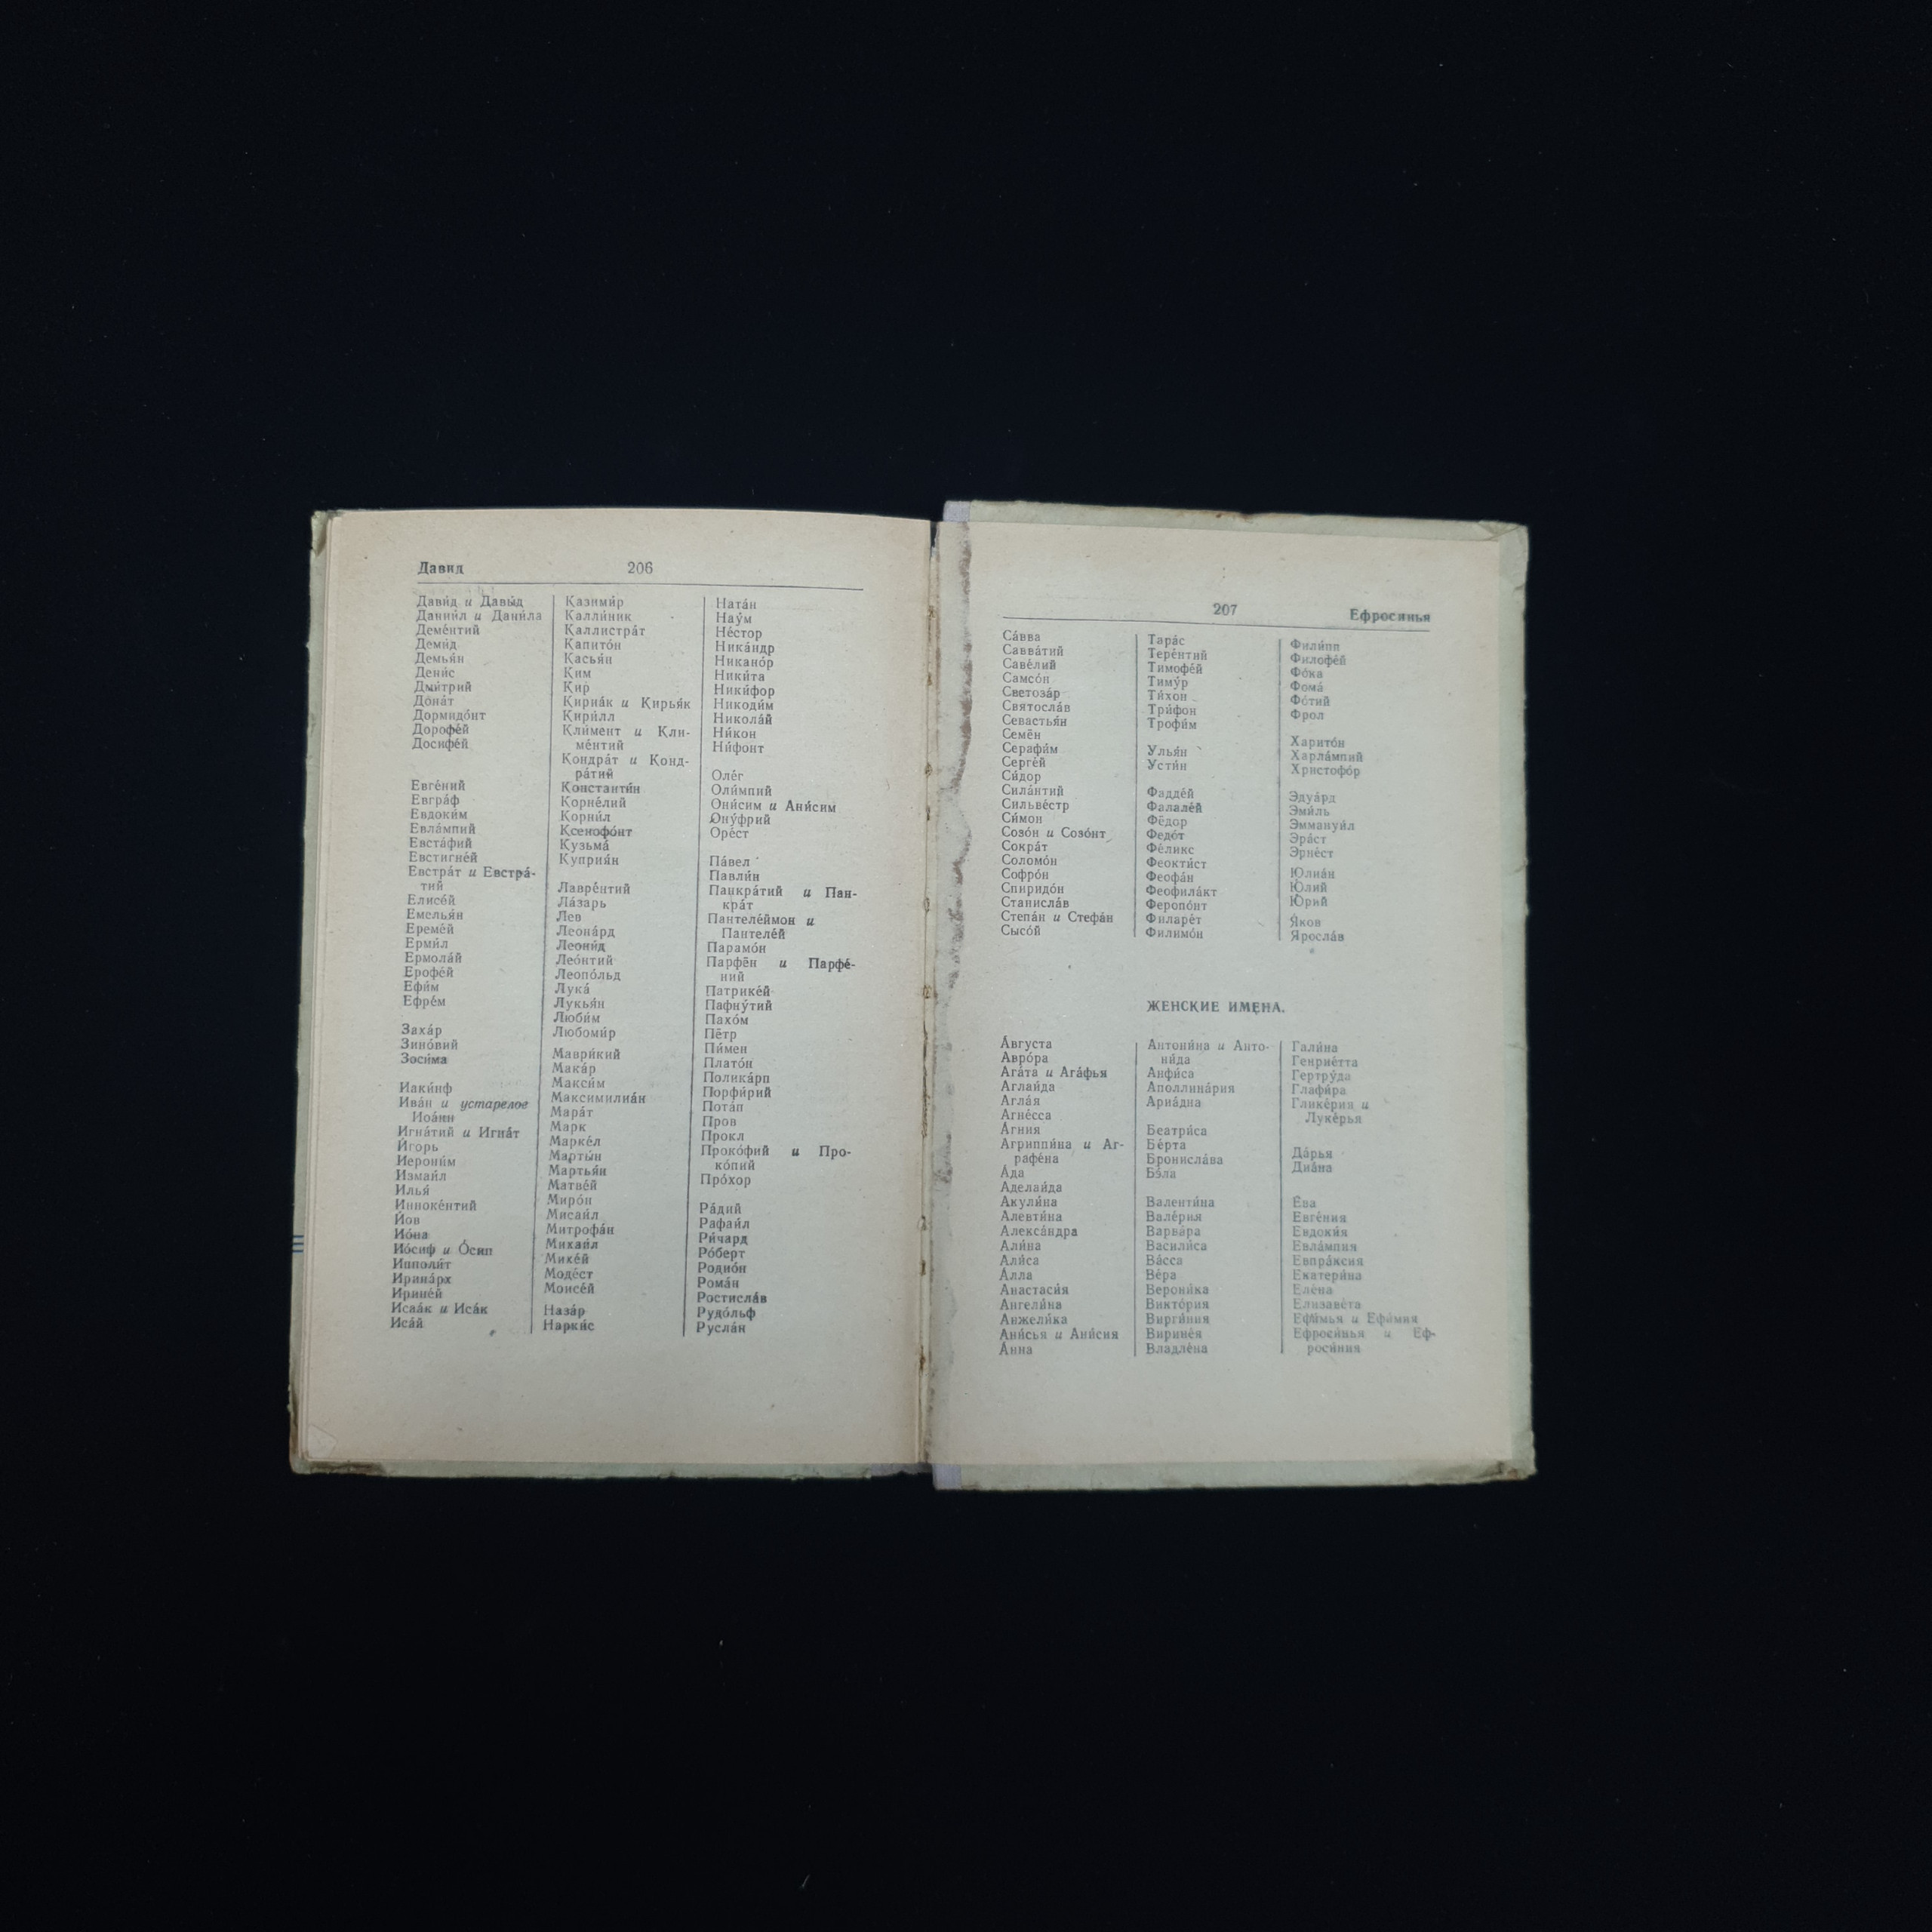 Давид
206
Дави́д и Давы́д
Дании́л и Дани́ла
Деме́нтий
Деми́д
Демья́н
Дени́с
Дми́трий
Дона́т
Дормидо́нт
Дорофе́й
Досифе́й
Евге́ний
Евгра́ф
Евдоки́м
Евла́мпий
Евста́фий
Евстигне́й
Евстра́т и Евстра́-
тий
Елисе́й
Емелья́н
Ереме́й
Ерми́л
Ермола́й
Ерофе́й
Ефи́м
Ефре́м
Заха́р
Зино́вий
Зоси́ма
Иаки́нф
Ива́н и устарелое
Иоа́нн
Игна́тий и Игна́т
И́горь
Иерони́м
Измаи́л
Илья́
Инноке́нтий
И́ов
Ио́на
Ио́сиф и О́сип
Ипполи́т
Ирина́рх
Ирине́й
Исаа́к и Иса́к
Иса́й
Казими́р
Калли́ник
Каллистра́т
Капито́н
Касья́н
Ким
Кир
Кириа́к и Кирья́к
Кири́лл
Кли́мент и Кли-
ме́нтий
Кондра́т и Конд-
ра́тий
Константи́н
Корне́лий
Корни́л
Ксенофо́нт
Кузьма́
Куприя́н
Лавре́нтий
Ла́зарь
Лев
Леона́рд
Леони́д
Лео́нтий
Леопо́льд
Лука́
Лукья́н
Люби́м
Любоми́р
Маври́кий
Мака́р
Макси́м
Максимилиа́н
Мара́т
Марк
Марке́л
Марты́н
Мартья́н
Матве́й
Миро́н
Мисаи́л
Митрофа́н
Михаи́л
Михе́й
Моде́ст
Моисе́й
Наза́р
Нарки́с
Ната́н
Нау́м
Не́стор
Ника́ндр
Никано́р
Ники́та
Ники́фор
Никоди́м
Никола́й
Ни́кон
Ни́фонт
Оле́г
Оли́мпий
Они́сим и Ани́сим
Ону́фрий
Оре́ст
Па́вел
Павли́н
Панкра́тий и Пан-
кра́т
Пантеле́ймон и
Пантеле́й
Парамо́н
Парфён и Парфе́-
ний
Патрике́й
Пафну́тий
Пахо́м
Пётр
Пи́мен
Плато́н
Полика́рп
Порфи́рий
Пота́п
Пров
Прокл
Проко́фий и Про-
ко́пий
Про́хор
Ра́дий
Рафаи́л
Ри́чард
Ро́берт
Родио́н
Рома́н
Ростисла́в
Рудо́льф
Русла́н
207
Ефросинья
Са́вва
Савва́тий
Саве́лий
Самсо́н
Светоза́р
Святосла́в
Севастья́н
Семён
Серафи́м
Серге́й
Си́дор
Сила́нтий
Сильве́стр
Си́мон
Созо́н и Созо́нт
Сокра́т
Соломо́н
Софро́н
Спиридо́н
Станисла́в
Степа́н и Стефа́н
Сысо́й
Тара́с
Тере́нтий
Тимофе́й
Тиму́р
Ти́хон
Три́фон
Трофи́м
Улья́н
Усти́н
Фадде́й
Фалале́й
Фёдор
Федо́т
Фе́ликс
Феокти́ст
Феофа́н
Феофила́кт
Феропо́нт
Филаре́т
Филимо́н
Фили́пп
Филофе́й
Фо́ка
Фома́
Фо́тий
Фрол
Харито́н
Харла́мпий
Христофо́р
Эдуа́рд
Эми́ль
Эммануи́л
Эра́ст
Эрне́ст
Юлиа́н
Ю́лий
Ю́рий
Я́ков
Яросла́в
ЖЕНСКИЕ ИМЕНА.
А́вгуста
Авро́ра
Ага́та и Ага́фья
Аглаи́да
Агла́я
Агне́сса
А́гния
Агриппи́на и Аг-
рафе́на
А́да
Аделаи́да
Акули́на
Алевти́на
Алекса́ндра
Али́на
Али́са
А́лла
Анастаси́я
Ангели́на
Анжели́ка
Ани́сья и Ани́сия
А́нна
Антони́на и Анто-
ни́да
Анфи́са
Аполлина́рия
Ариа́дна
Беатри́са
Бе́рта
Бронисла́ва
Бэ́ла
Валенти́на
Вале́рия
Варва́ра
Васили́са
Ва́сса
Ве́ра
Верони́ка
Викто́рия
Вирги́ния
Вирине́я
Владле́на
Гали́на
Генрие́тта
Гертру́да
Глафи́ра
Глике́рия и
Луке́рья
Да́рья
Диа́на
Е́ва
Евге́ния
Евдоки́я
Евла́мпия
Евпра́ксия
Екатери́на
Еле́на
Елизаве́та
Ефи́мья и Ефи́мия
Ефроси́нья и Еф-
роси́ния